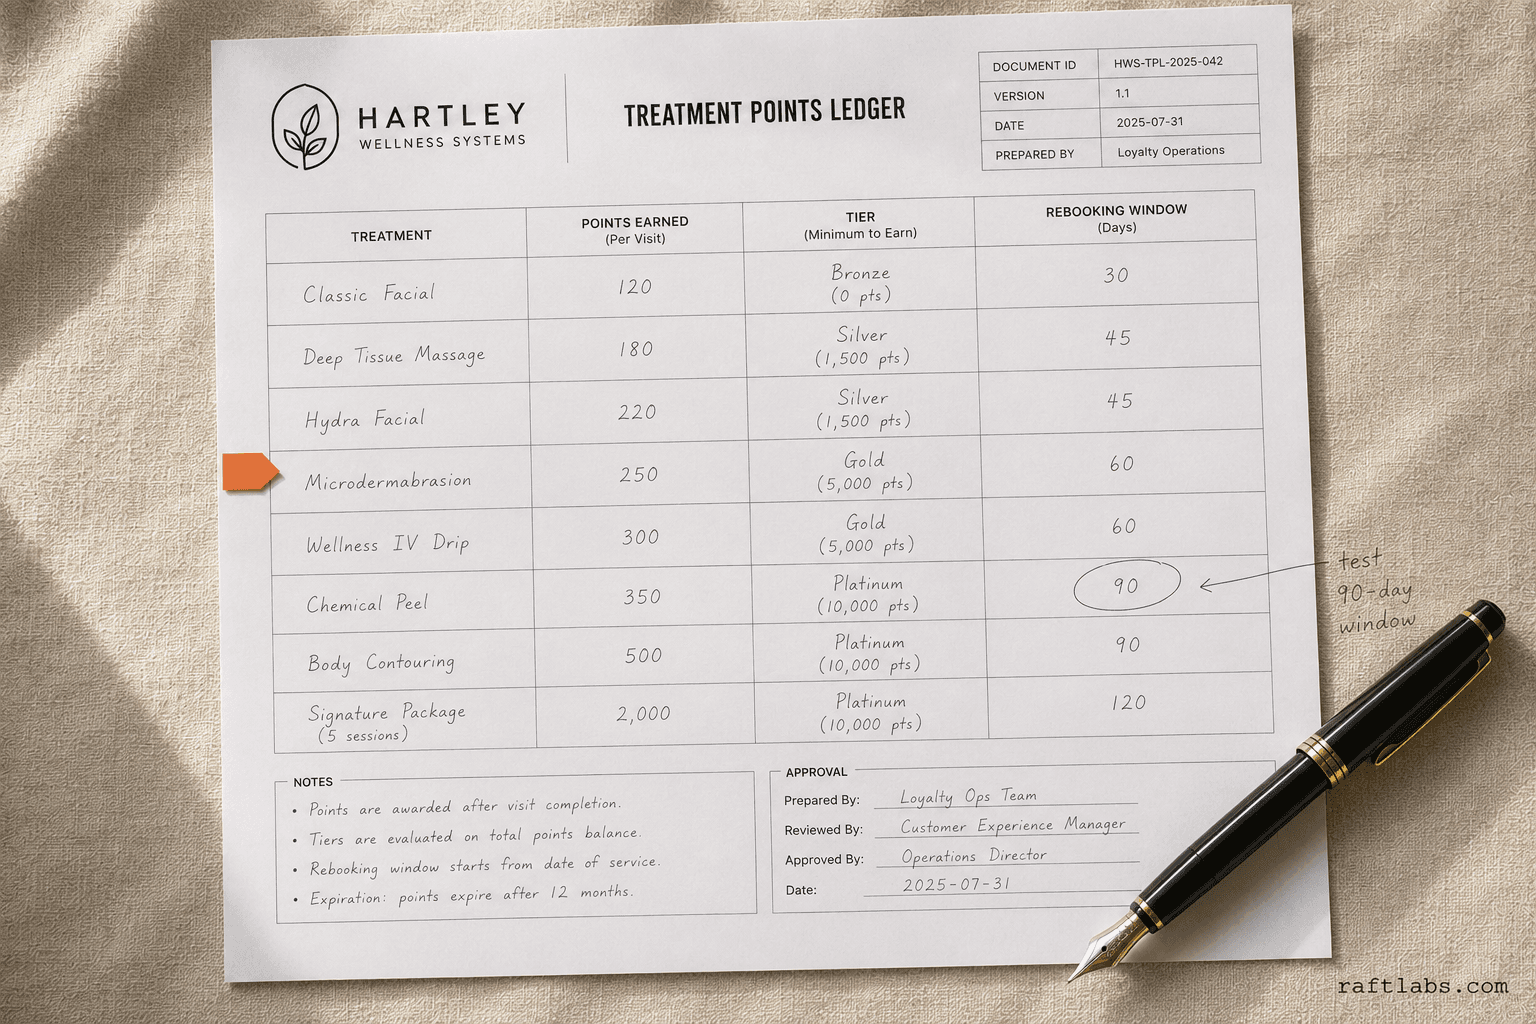 HARTLEY
WELLNESS SYSTEMS
TREATMENT POINTS LEDGER
DOCUMENT ID HWS-TPL-2025-042
VERSION 1.1
DATE 2025-07-31
PREPARED BY Loyalty Operations
TREATMENT POINTS EARNED (Per Visit) TIER (Minimum to Earn) REBOOKING WINDOW (Days)
Classic Facial 120 Bronze (0 pts) 30
Deep Tissue Massage 180 Silver (1,500 pts) 45
Hydra Facial 220 Silver (1,500 pts) 45
Microdermabrasion 250 Gold (5,000 pts) 60
Wellness IV Drip 300 Gold (5,000 pts) 60
Chemical Peel 350 Platinum (10,000 pts) 90
test
90-day
window
Body Contouring 500 Platinum (10,000 pts) 90
Signature Package (5 sessions) 2,000 Platinum (10,000 pts) 120
NOTES
• Points are awarded after visit completion.
• Tiers are evaluated on total points balance.
• Rebooking window starts from date of service.
• Expiration: points expire after 12 months.
APPROVAL
Prepared By: Loyalty Ops Team
Reviewed By: Customer Experience Manager
Approved By: Operations Director
Date: 2025-07-31
raftlabs.com